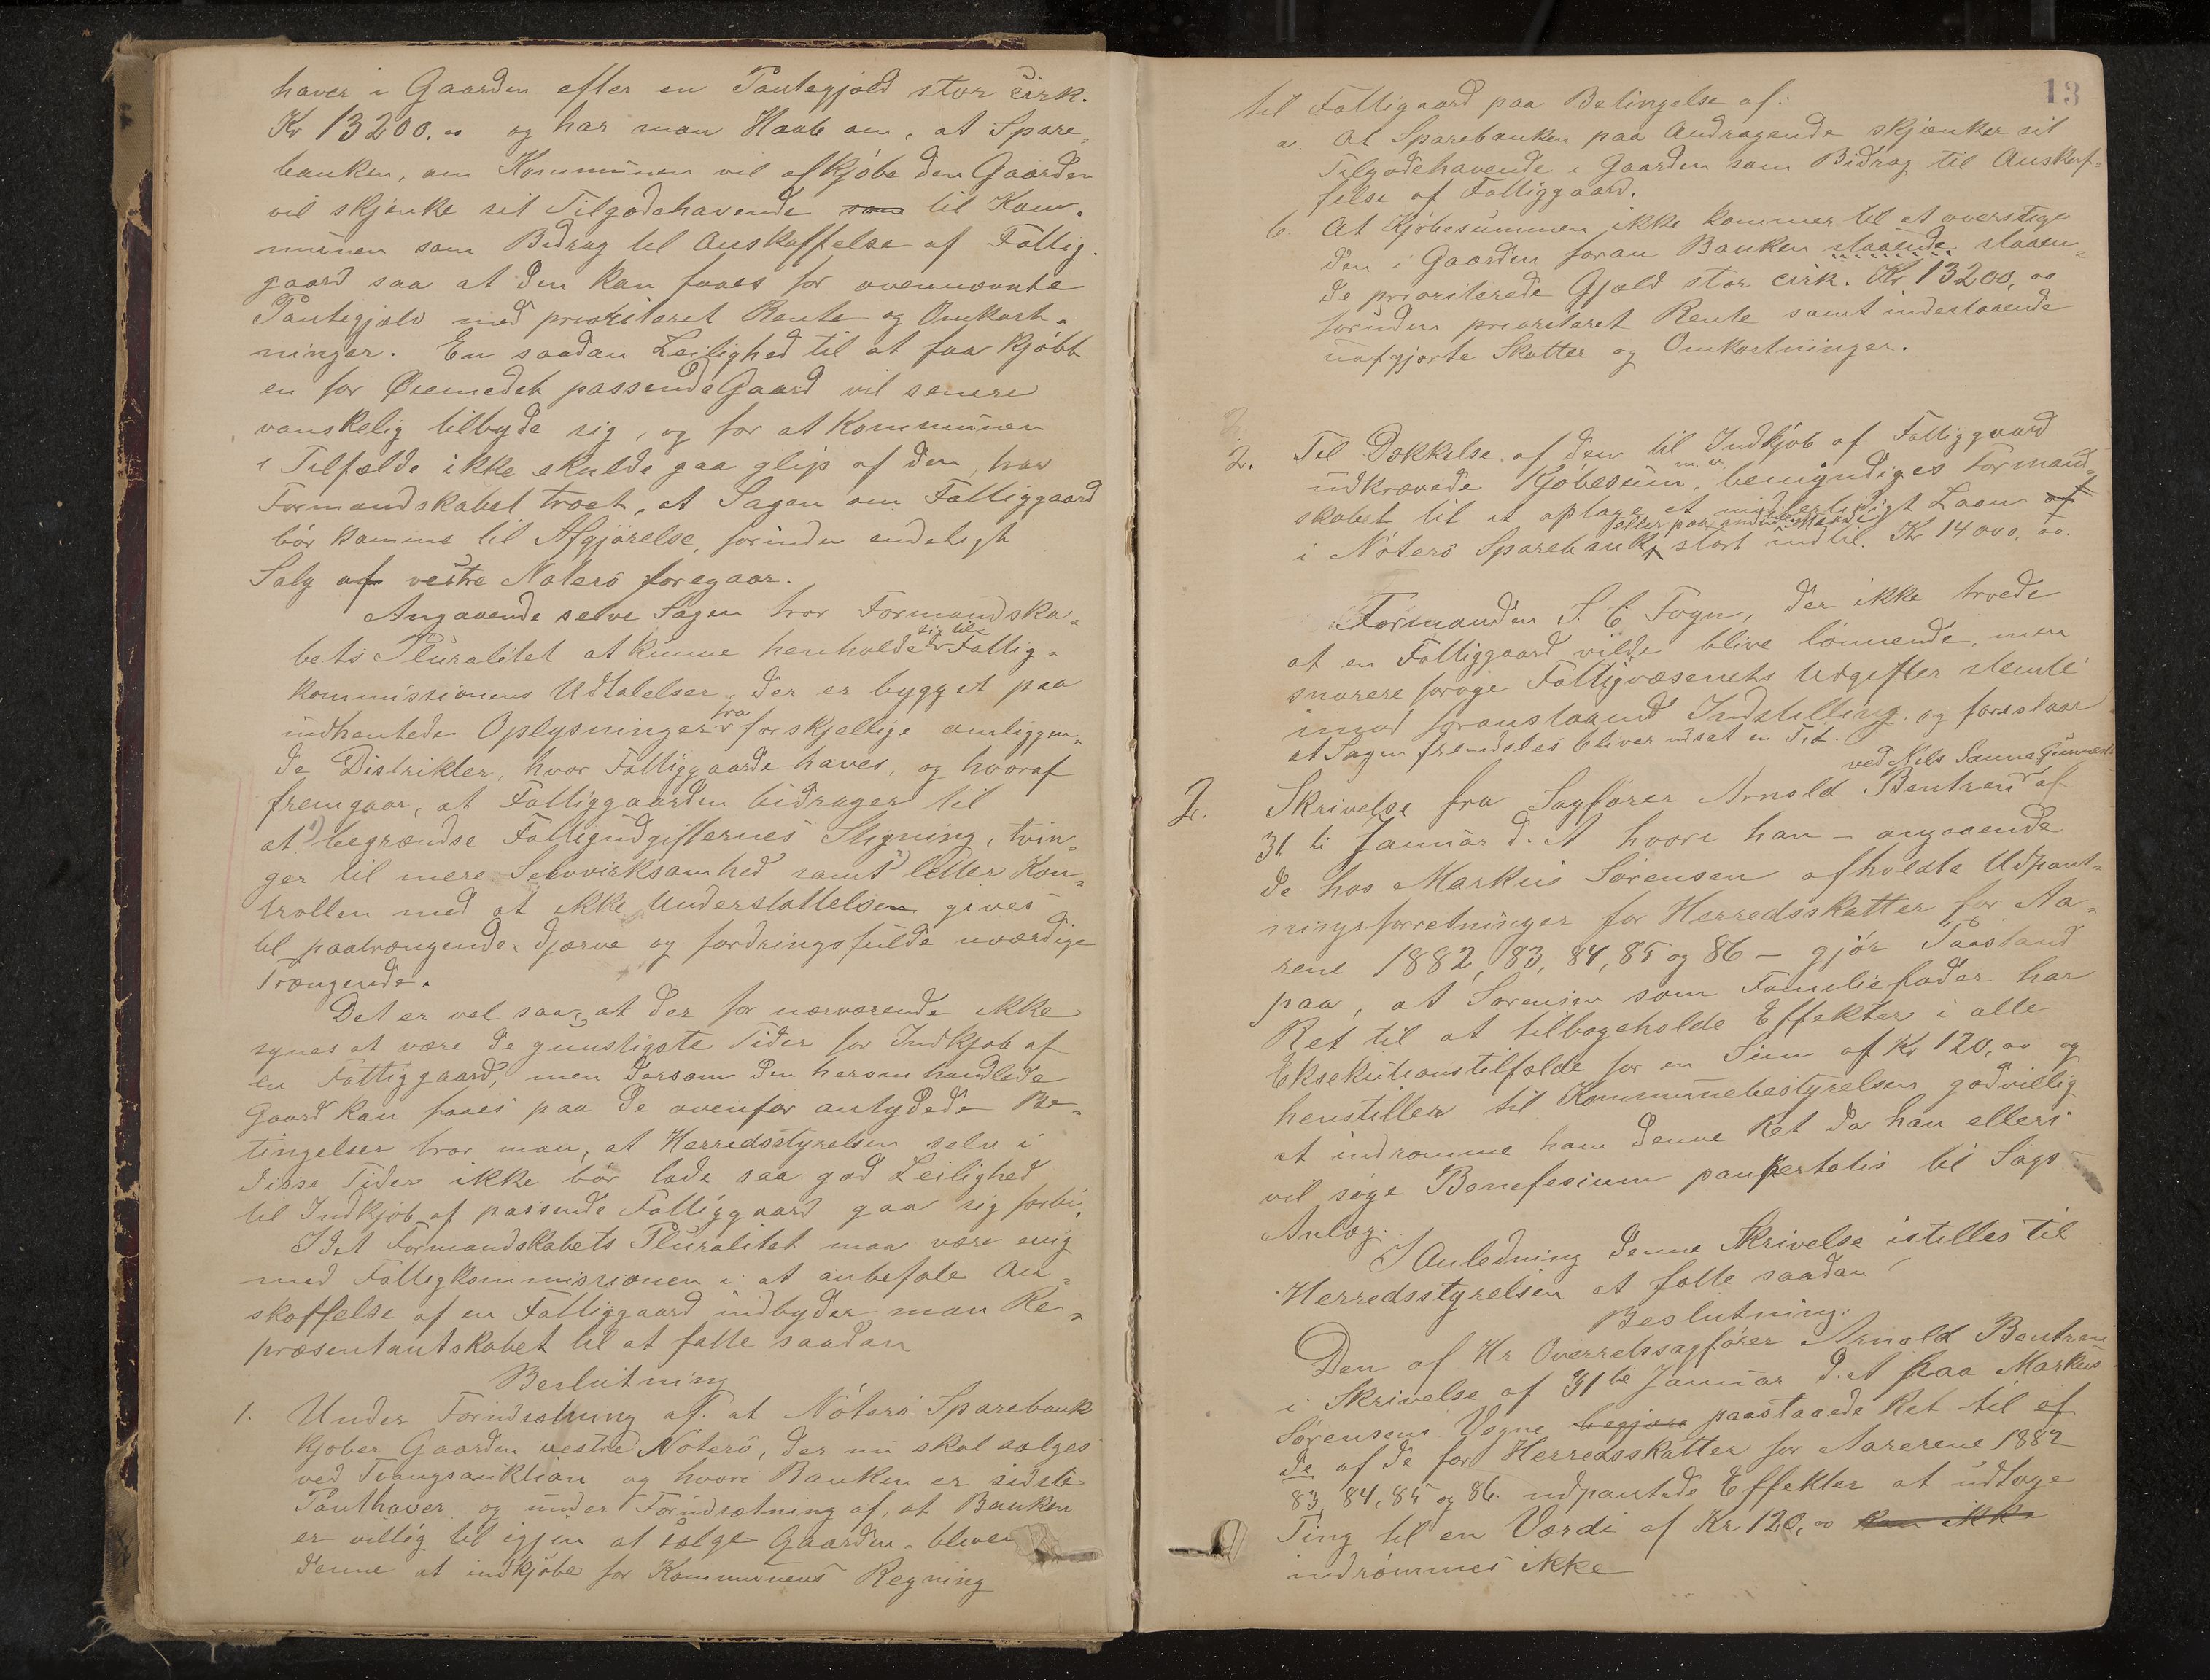 haver i Gaarden efter en Pantegjæld stor cirk.
Kr 13200.00 og har man Haab om, at Spare-
banken, om Kommunen vil afkjöbe den Gaarden
vil skjenke sit Tilgodehavende som til Kom-
munen som Bidrag til Anskaffelse af Fattig-
gaard saa at den kan faaes for ovennævnte
Pantegjæld med prioriteret Rente og Omkost-
ninger. En saadan Leilighed til at faa kjöbt
en for Øiemedet passende Gaard vil senere
vanskelig tilbyde sig, og for at Kommunen
i Tilfælde ikke skulde gaa glip af den, har
Formandskabet troet, at Sagen om Fattiggaard
bör komme til Afgjørelse, forinden endeligt
Salg af vestre Nøterö foregaar.
Angaaende selve Sagen tror Formandska-
bets Pluralitet at kunne henholde sig til Fattig-
kommissionens Udtalelser, der er bygget paa
indhentede Oplysninger fra forskjellige omliggen-
de Distrikter, hvor Fattiggaarde haves, og hvoraf
fremgaar, at Fattiggaarden bidrager til
at 1) begrændse Fattigudgifternes Stigning, tvin-
ger til mere Selvvirksomhed samt 2) letter Kon-
trollen med at ikke Understøttelsen gives
til paatrængende, djærve og fordringsfulde uværdige
Trængende.
Det er vel saa, at der for nærværende ikke
synes at være de gunstigste Tider for Indkjøb af
en Fattiggaard, men dersom den herom handlede
Gaard kan faaes paa de ovenfor antydede Be-
tingelser tror man, at Herredsstyrelsen selv i
disse Tider ikke bör lade saa god Leilighed
til Indkjöb af passende Fattiggaard gaa sig forbi.
Idet Formandskabets Pluralitet maa være enig
med Fattigkommissionen i at anbefale An-
skaffelse af en Fattiggaard indbyder man Re-
præsentantskabet til at fatte saadan
Beslutning
1. Under Forudsætning af at Nöterö Sparebank
kjøber Gaarden vestre Nöterö, der nu skal sælges
ved Tvangsauktion og hvori Banken er sidste
Panthaver og under Forudsætning af, at Banken
er villig til igjen at sælge Gaarden, bliver
denne at indkjöbe for Kommunens Regning
13
til Fattiggaard paa Betingelse af:
a. At Sparebanken paa Andragende skjænker sit
Tilgodehavende i Gaarden som Bidrag til Anskaf-
felse af Fattiggaard.
b. At Kjöbesummen ikke kommer til at overstige
den i Gaarden foran Banken staaende staaen-
de prioriterede Gjæld stor cirk. Kr 13200,00
foruden prioriteret Rente samt indestaaende
uafgjorte Skatter og Omkostninger.
2. Til Dækkelse af den til Indkjöb af Fattiggaard
udkrævede Kjöbesum m. v. bemyndiges Formand-
skabet til at optage et midlertidigt Laan af
i Nöterö Sparebank eller paa anden Maade stort indtil Kr 14000,00.
Formanden S. C. Fogn, der ikke troede
at en Fattiggaard vilde blive lønnende, men
snarere forøge Fattigvæsenets Udgifter stemte
imod foranstaaende Indstilling, og foreslaar
at Sagen fremdeles bliver udsat en Tid.
2. Skrivelse fra Sagfører Arnold Bentzen ved Nils Sanne Gunnestad af
31 te Januar d. A hvori han – angaaende
de hos Markus Sörensen afholdte Udpant-
ningsforretninger for Herredsskatter for Aa-
rene 1882, 83, 84, 85 og 86 – gjör Paastand
paa, at Sørensen som Familiefader har
Ret til at tilbageholde Effekter i alle
Eksekutionstilfælde for en Sum af Kr 120,00 og
henstiller til Kommunebestyrelsen godvillig
at indrømme ham denne Ret da han ellers
vil søge Benefesium paupertatis til Sags
Anlæg.
I Anledning denne Skrivelse istilles til
Herredsstyrelsen at fatte saadan
Beslutning:
Den af Hr Overretssagförer Arnold Bentzen
i Skrivelse af 31te Januar d. A paa Markus
Sörensens Vegne begjære paastaaede Ret til af
de af de for Herredsskatter for Aarerene 1882
83, 84, 85 og 86 udpantede Effekter at udtage
Ting til en Værdi af Kr 120,00 kan ikke
indrömmes ikke